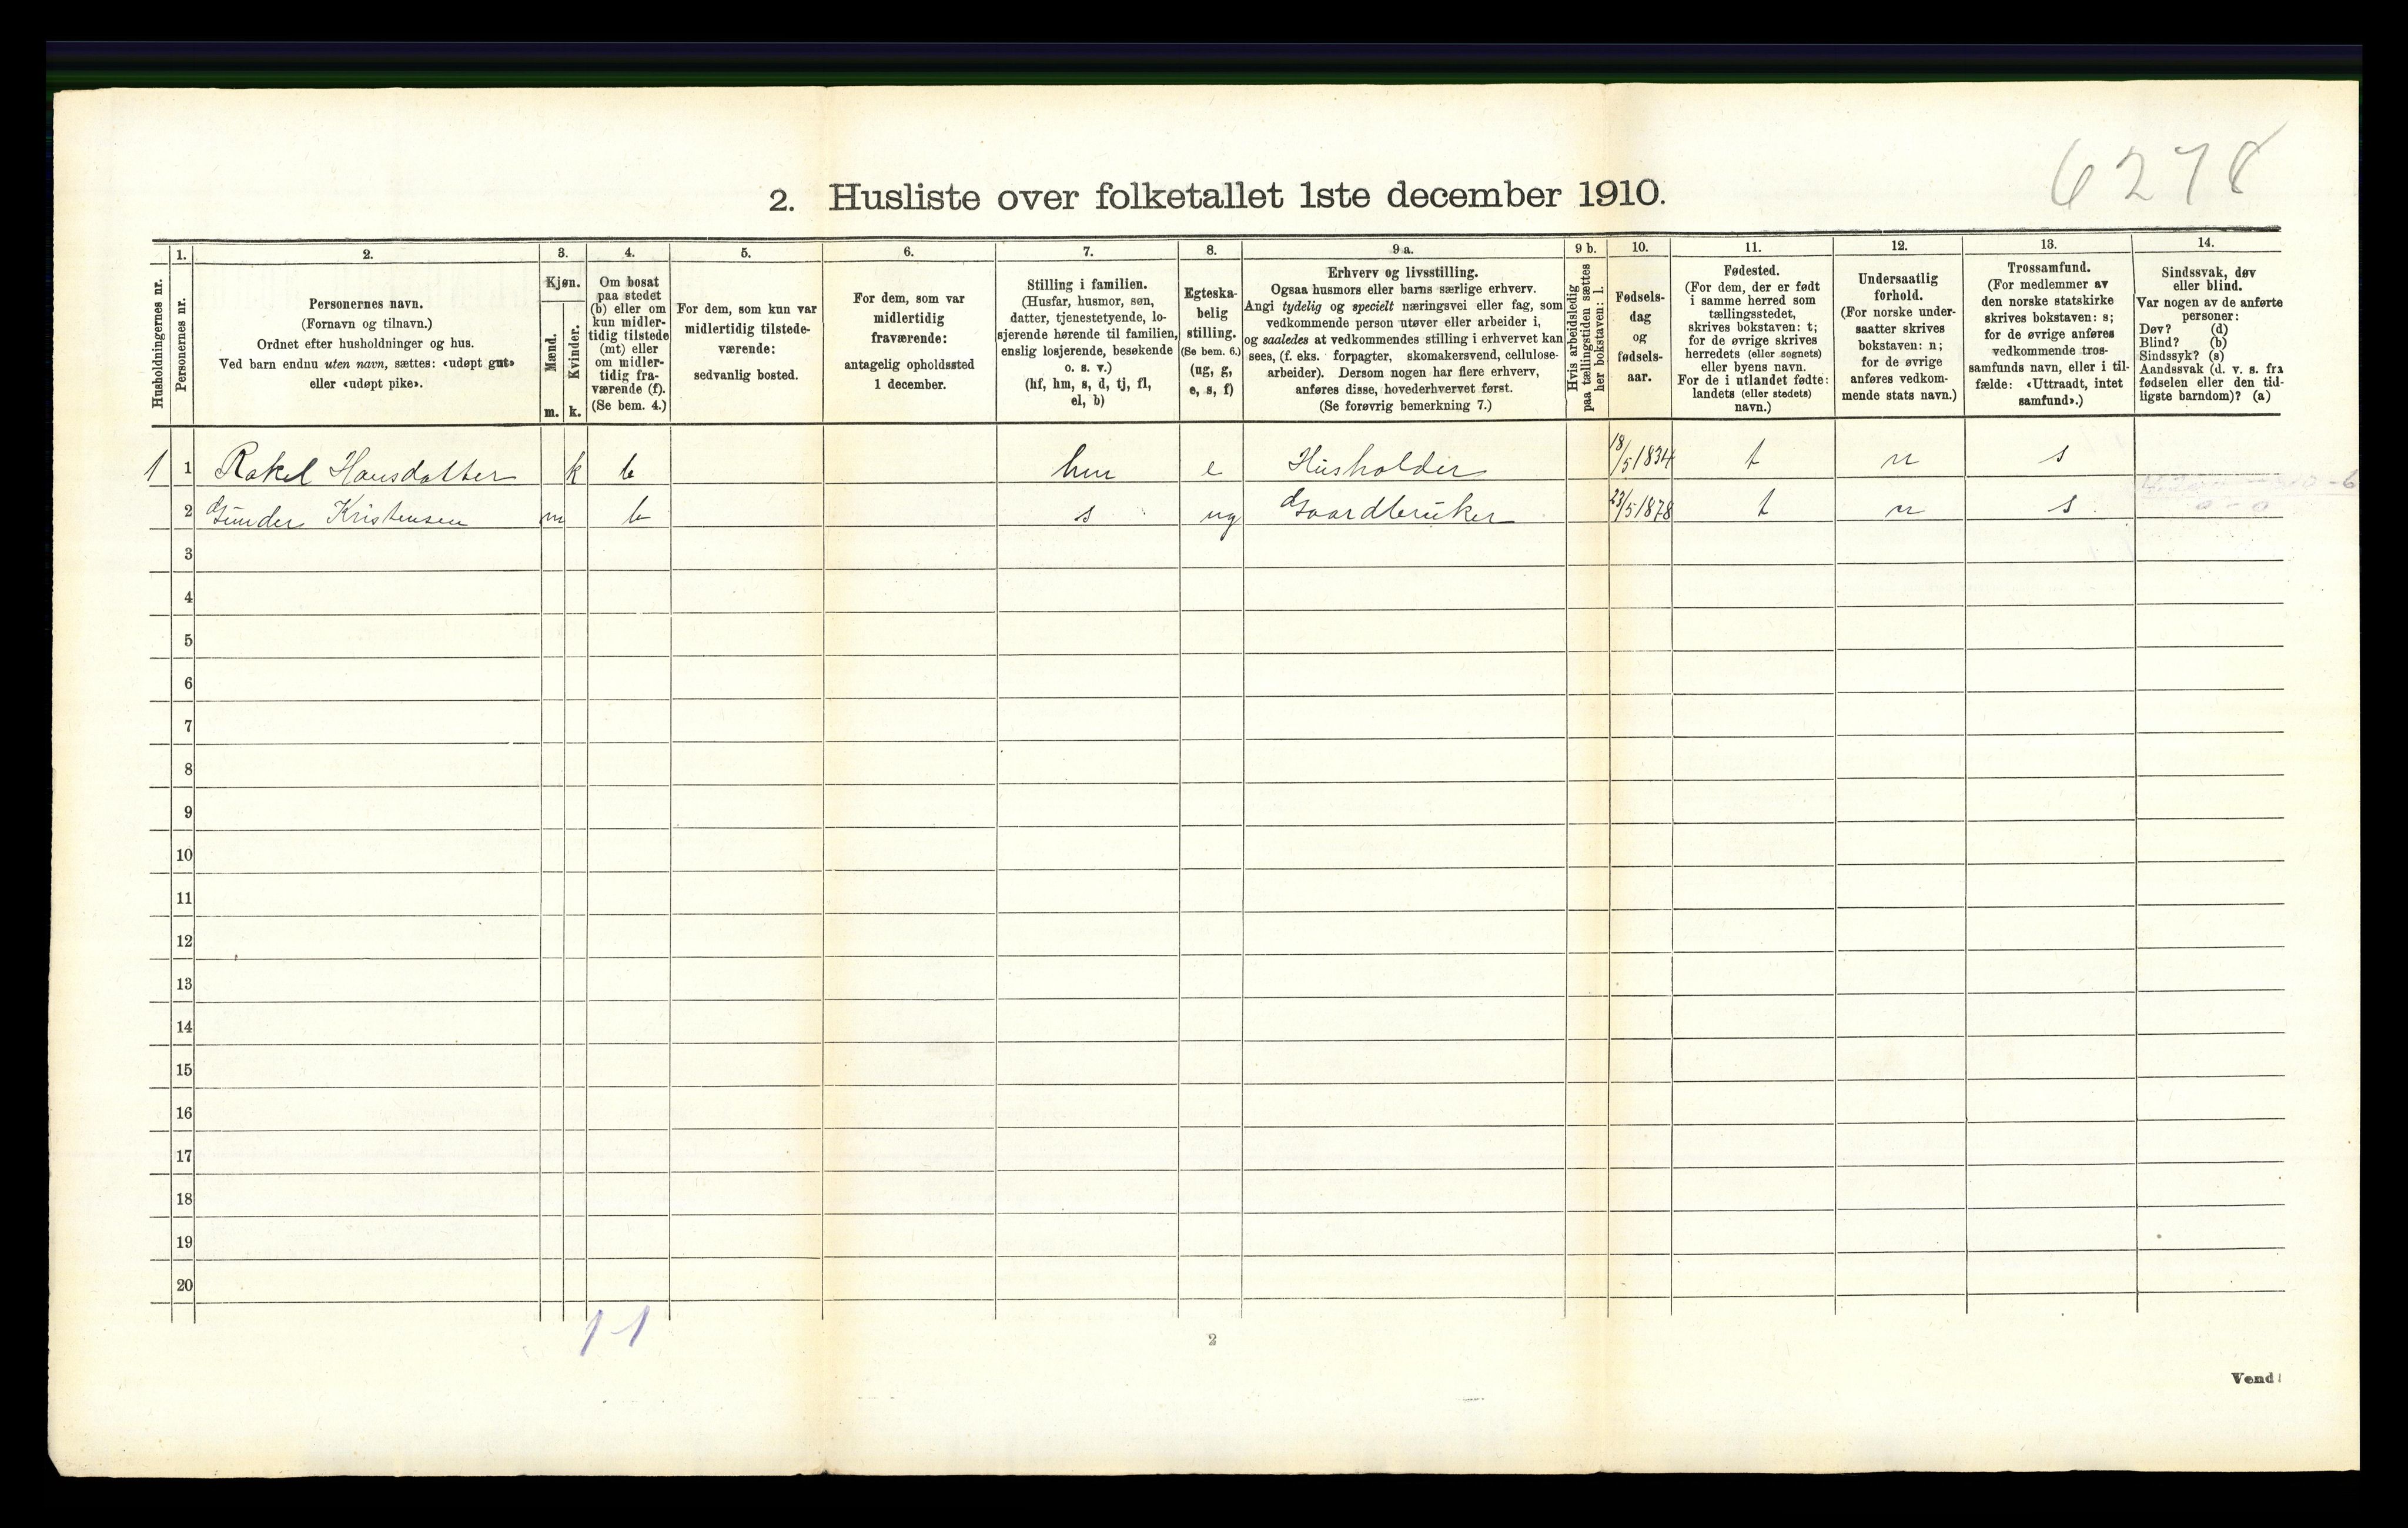 6278
2. Husliste over folketallet 1ste december 1910.
Husholdningernes nr.
1.
Personernes nr.
2.
Personernes navn.
(Fornavn og tilnavn.)
Ordnet efter husholdninger og hus.
Ved barn endnu uten navn, sættes: «udøpt gut»
eller «udøpt pike».
3.
Kjøn.
Mænd.
m.
Kvinder.
k.
4.
Om bosat
paa stedet
(b) eller om
kun midler-
tidig tilstede
(mt) eller
om midler-
tidig fra-
værende (f).
(Se bem. 4.)
5.
For dem, som kun var
midlertidig tilstede-
værende:
sedvanlig bosted.
6.
For dem, som var
midlertidig
fraværende:
antagelig opholdssted
1 december.
7.
Stilling i familien.
(Husfar, husmor, søn,
datter, tjenestetyende, lo-
sjerende hørende til familien,
enslig losjerende, besøkende
o. s. v.)
(hf, hm, s, d, tj, fl,
el, b)
8.
Egteska-
belig
stilling.
(Se bem. 6.)
(ug, g,
e, s, f)
9 a.
Erhverv og livsstilling.
Ogsaa husmors eller barns særlige erhverv.
Angi tydelig og specielt næringsvei eller fag, som
vedkommende person utøver eller arbeider i,
og saaledes at vedkommendes stilling i erhvervet kan
sees, (f. eks. forpagter, skomakersvend, cellulose-
arbeider). Dersom nogen har flere erhverv,
anføres disse, hovederhvervet først.
(Se forøvrig bemerkning 7.)
9 b.
Hvis arbeidsledig
paa tællingstiden sættes
her bokstaven: l.
10.
Fødsels-
dag
og
fødsels-
aar.
11.
Fødested.
(For dem, der er født
i samme herred som
tællingsstedet,
skrives bokstaven: t;
for de øvrige skrives
herredets (eller sognets)
eller byens navn.
For de i utlandet fødte:
landets (eller stedets)
navn.)
12.
Undersaatlig
forhold.
(For norske under-
saatter skrives
bokstaven: n;
for de øvrige
anføres vedkom-
mende stats navn.)
13.
Trossamfund.
(For medlemmer av
den norske statskirke
skrives bokstaven: s;
for de øvrige anføres
vedkommende tros-
samfunds navn, eller i til-
fælde: «Uttraadt, intet
samfund».)
14.
Sindssvak, døv
eller blind.
Var nogen av de anførte
personer:
Døv? (d)
Blind? (b)
Sindssyk? (s)
Aandssvak (d. v. s. fra
fødselen eller den tid-
ligste barndom)? (a)
1 1 Rakel Hansdatter k b hm e Husholder 18/5 1834 t n s
2 Gunder Kristensen m b s ug Gaardbruker 23/5 1878 t n s
3
4
5
6
7
8
9
10
11
12
13
14
15
16
17
18
19
20
1-1
2
Vend!